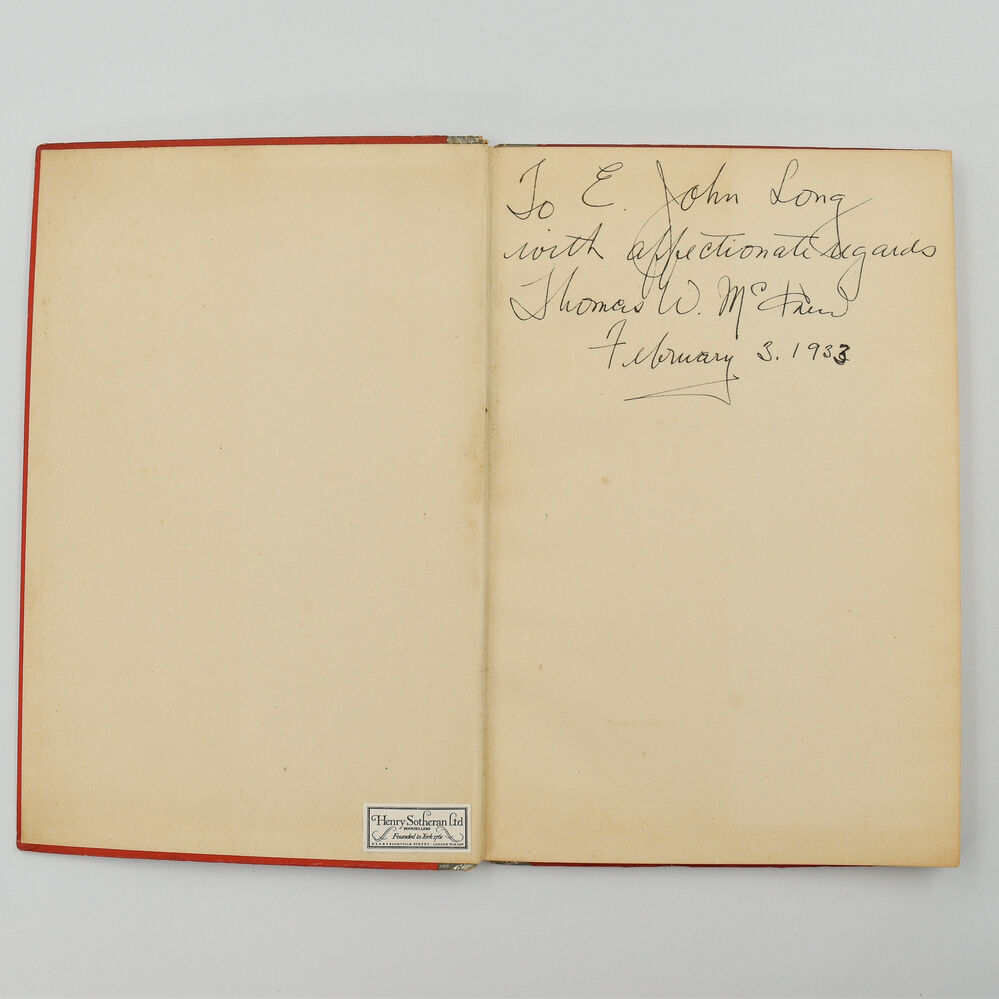 Henry Sotheran Ltd
BOOKSELLERS
Founded in York 1761
SACKVILLE STREET · LONDON
To E. John Long
with affectionate regards
Thomas W. McKnew
February 3. 1933